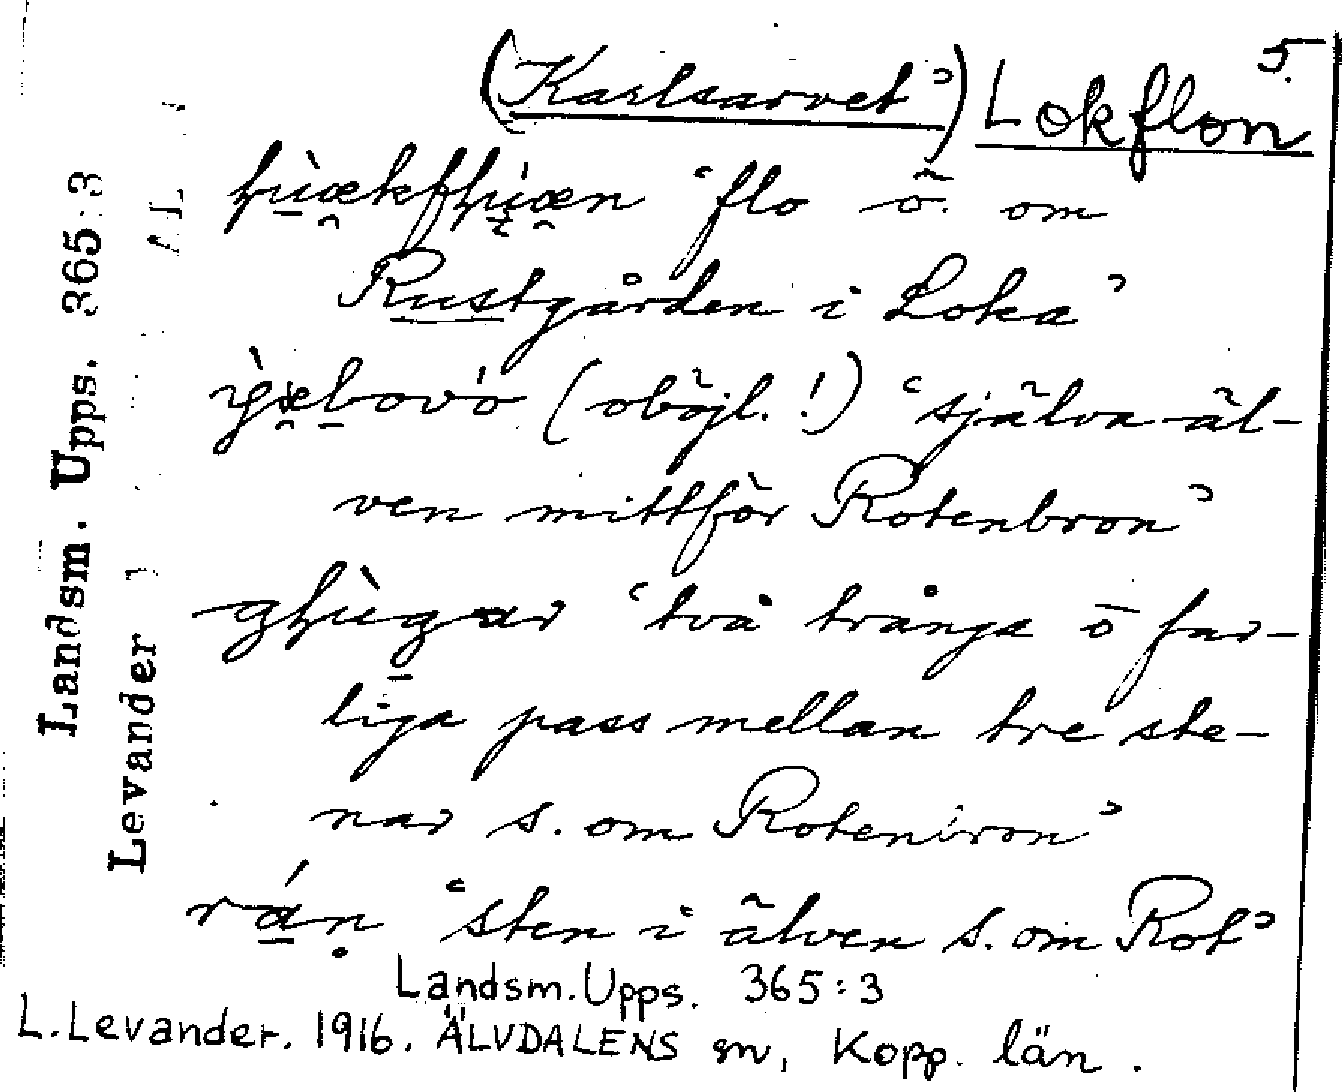 5.
(Karlsarvet) Lokflon
"flo ö. om
Rustgården i Loka"
(oböjl.!) "själva äl-
ven mittför Rotenbron"
"två trånga o far-
liga pass mellan tre ste-
nar s. om Rotenbron"
rán "sten i älven s. om Rot"
Landsm. Upps. 365:3
L. Levander. 1916. ÄLVDALENS sn, Kopp. län.
Landsm. Upps. 365:3
Levander